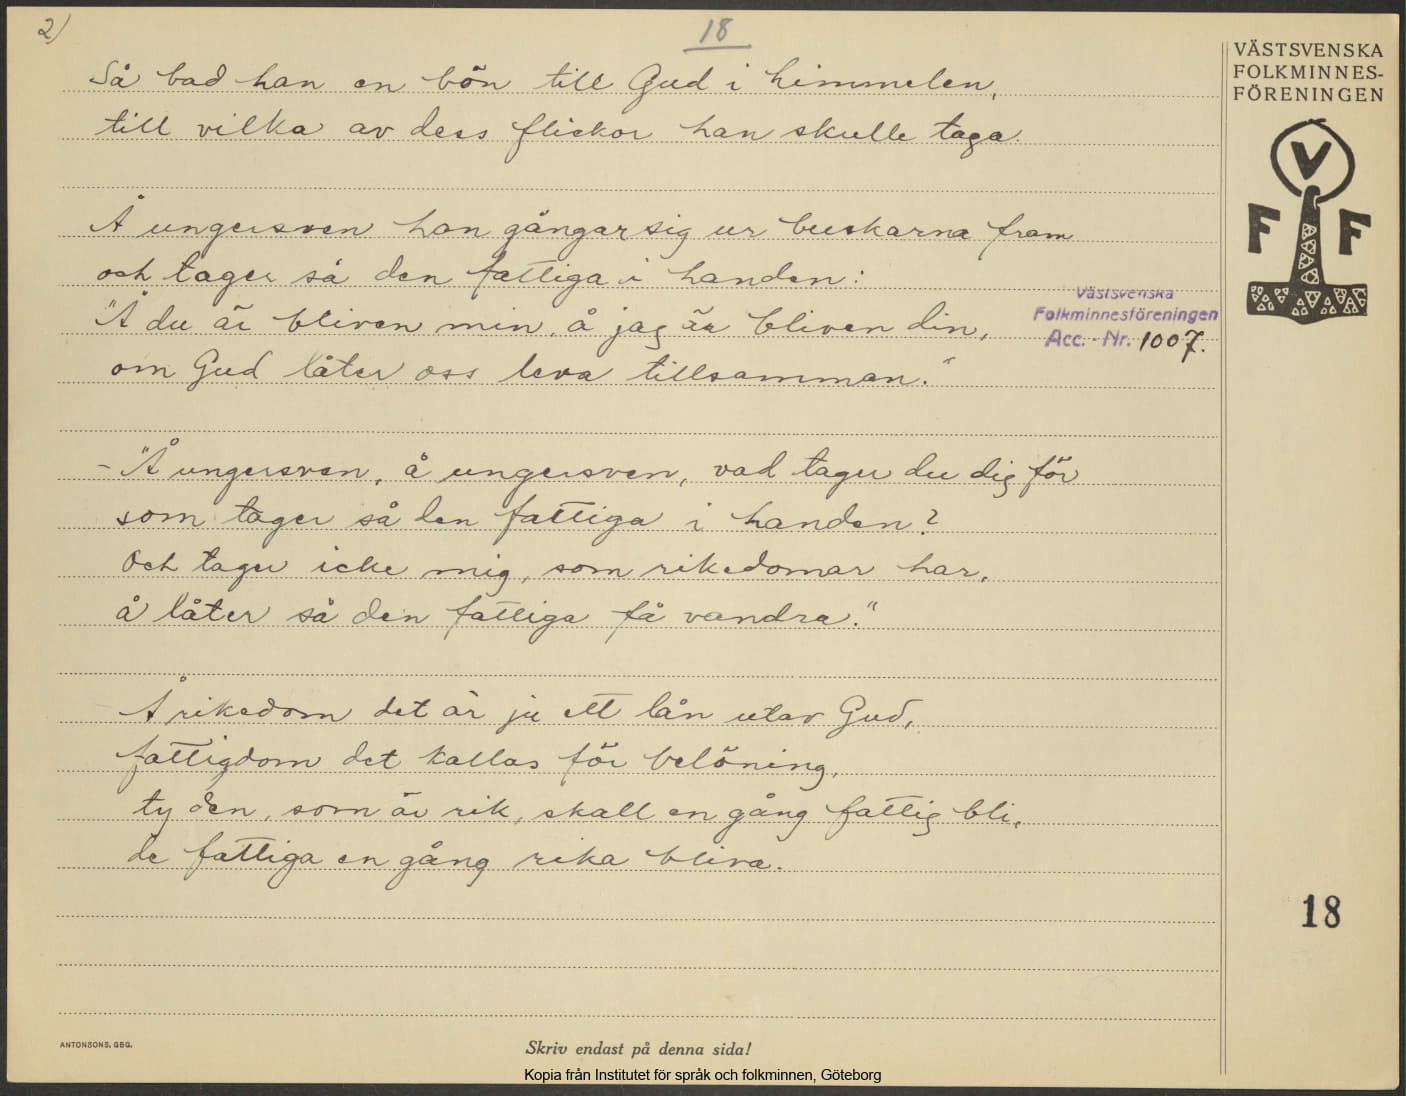 2)
18
Så bad han en bön till Gud i himmelen,
till vilka av dess flickor han skulle taga.
Å ungersven han gångar sig ur buskarna fram
och tager så den fattiga i handen:
"Å du är bliven min, å jag är bliven din,
om Gud låter oss leva tillsamman."
- "Å ungersven, å ungersven, vad tager du dig för
som tager så den fattiga i handen?
Och tager icke mig, som rikedomar har,
å låter så den fattiga få vandra."
Å rikedom det är ju ett lån utav Gud,
fattigdom det kallas för belöning,
ty den, som är rik, skall en gång fattig bli,
de fattiga en gång rika bliva.
VÄSTSVENSKA
FOLKMINNES-
FÖRENINGEN
V
F F
Västsvenska
Folkminnesföreningen
Acc. - Nr. 1007.
18
ANTONSONS, GBG.
Skriv endast på denna sida!
Kopia från Institutet för språk och folkminnen, Göteborg